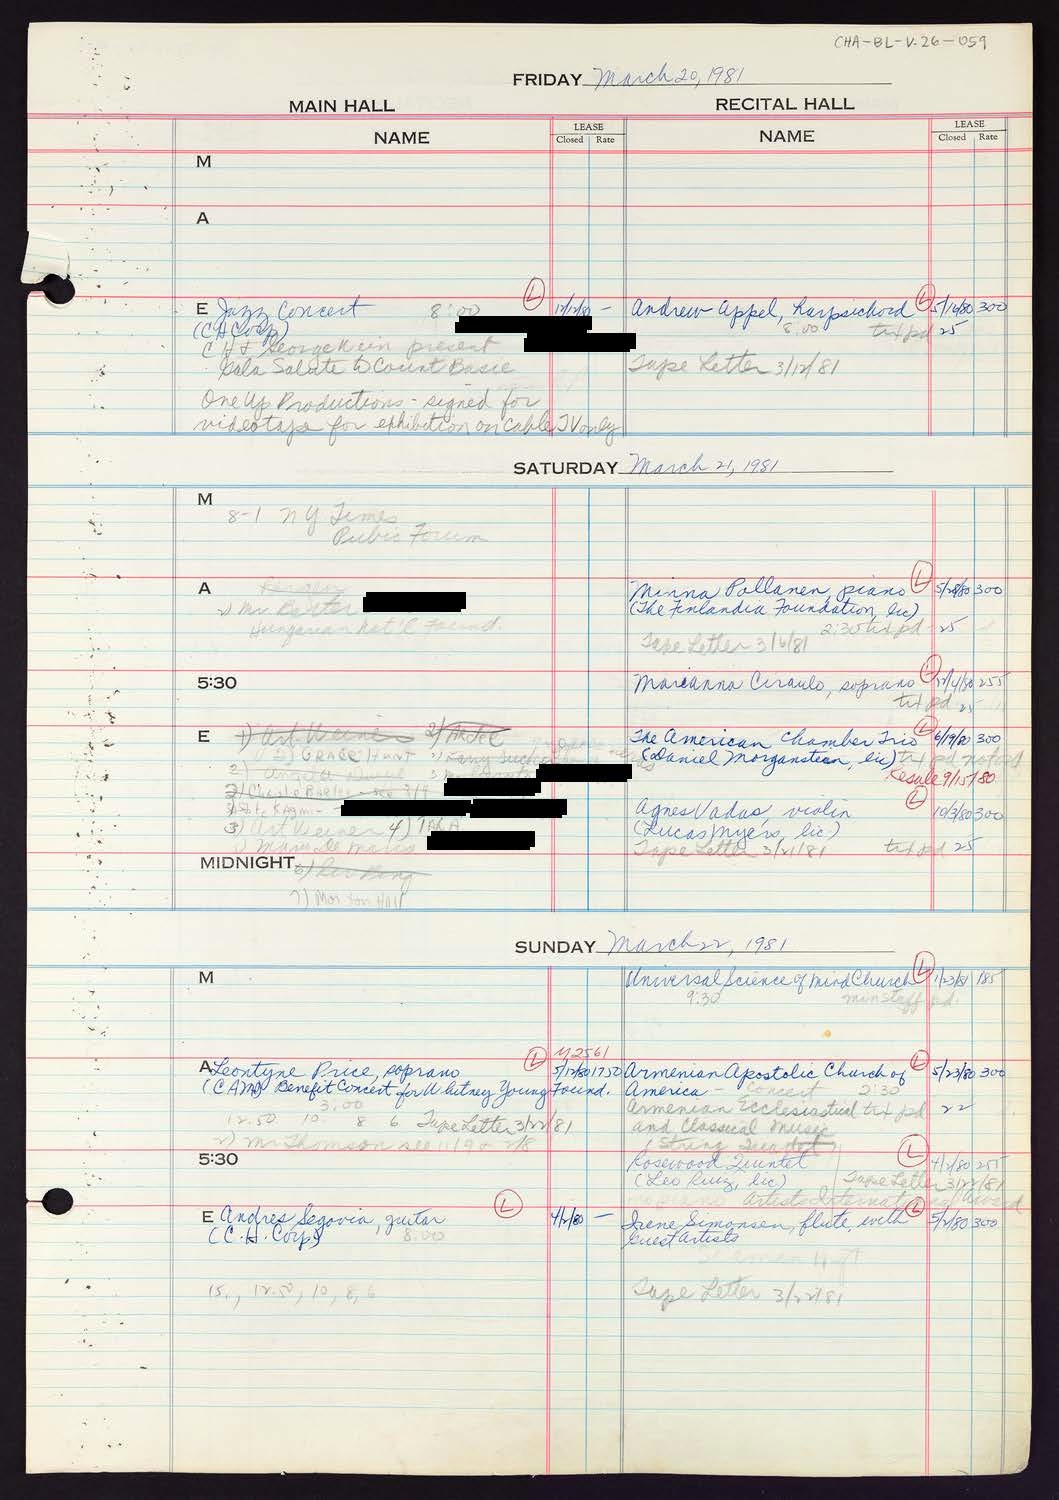 CHA-BL-V.26-059
FRIDAY March 20, 1981
MAIN HALL
RECITAL HALL
NAME
LEASE
Closed Rate
NAME
LEASE
Closed Rate
M
A
E Jazz Concert 8:00 L 12/12/80 —
(CH Corp)
CH & George Wein present
Gala Salute to Count Basie
One Up Productions - signed for
videotape for exhibition on Cable TV only
Andrew Appel, harpsichord L 5/14/80 300
8:00 txt pd 25
Tape Letter 3/12/81
SATURDAY March 21, 1981
M
8-1 NY Times
Public Forum
A
2) Mr.
Hungarian Nat'l Found.
Minna Pollanen, piano L 5/28/80 300
(The Finlandia Foundation, lic)
2:30 txt pd 25
Tape Letter 3/6/81
5:30
Marianna Ciraulo, soprano L 255
txt pd 25
E 1) Art Weiner
GRACE HUNT
3) Art Weiner 4)
MIDNIGHT
7) Morton Hall
The American Chamber Trio L 6/19/80 300
(Daniel Morganstern, lic) txt pd
Resale 9/15/80
L
Agnes Vadas, violin 10/3/80 300
(Lucas Myers, lic)
Tape Letter 3/21/81 txt pd 25
SUNDAY March 22, 1981
M
Universal Science of Mind Church L 1/23/81 185
9:30 min staff pd.
A Leontyne Price, soprano L M2561 5/12/80 1750
(CAMI) Benefit Concert for Whitney Young Found.
3:00
12.50 10. 8 6 Tape Letter 3/22/81
2) Mr Thomson see 11/9 & 2/8
Armenian Apostolic Church of L 5/23/80 300
America - Concert 2:30
Armenian Ecclesiastical txt pd 22
and Classical Music
5:30
Rosewood Quintet L 4/2/80 255
(Leo Ruiz, lic) Tape Letter 3/22/81
Artists International Award
E Andres Segovia, guitar L 4/2/80 —
(C.H. Corp) 8:00
15., 12.50, 10, 8, 6
Irene Simonsen, flute, with L 5/2/80 300
Guest Artists
Tape Letter 3/22/81